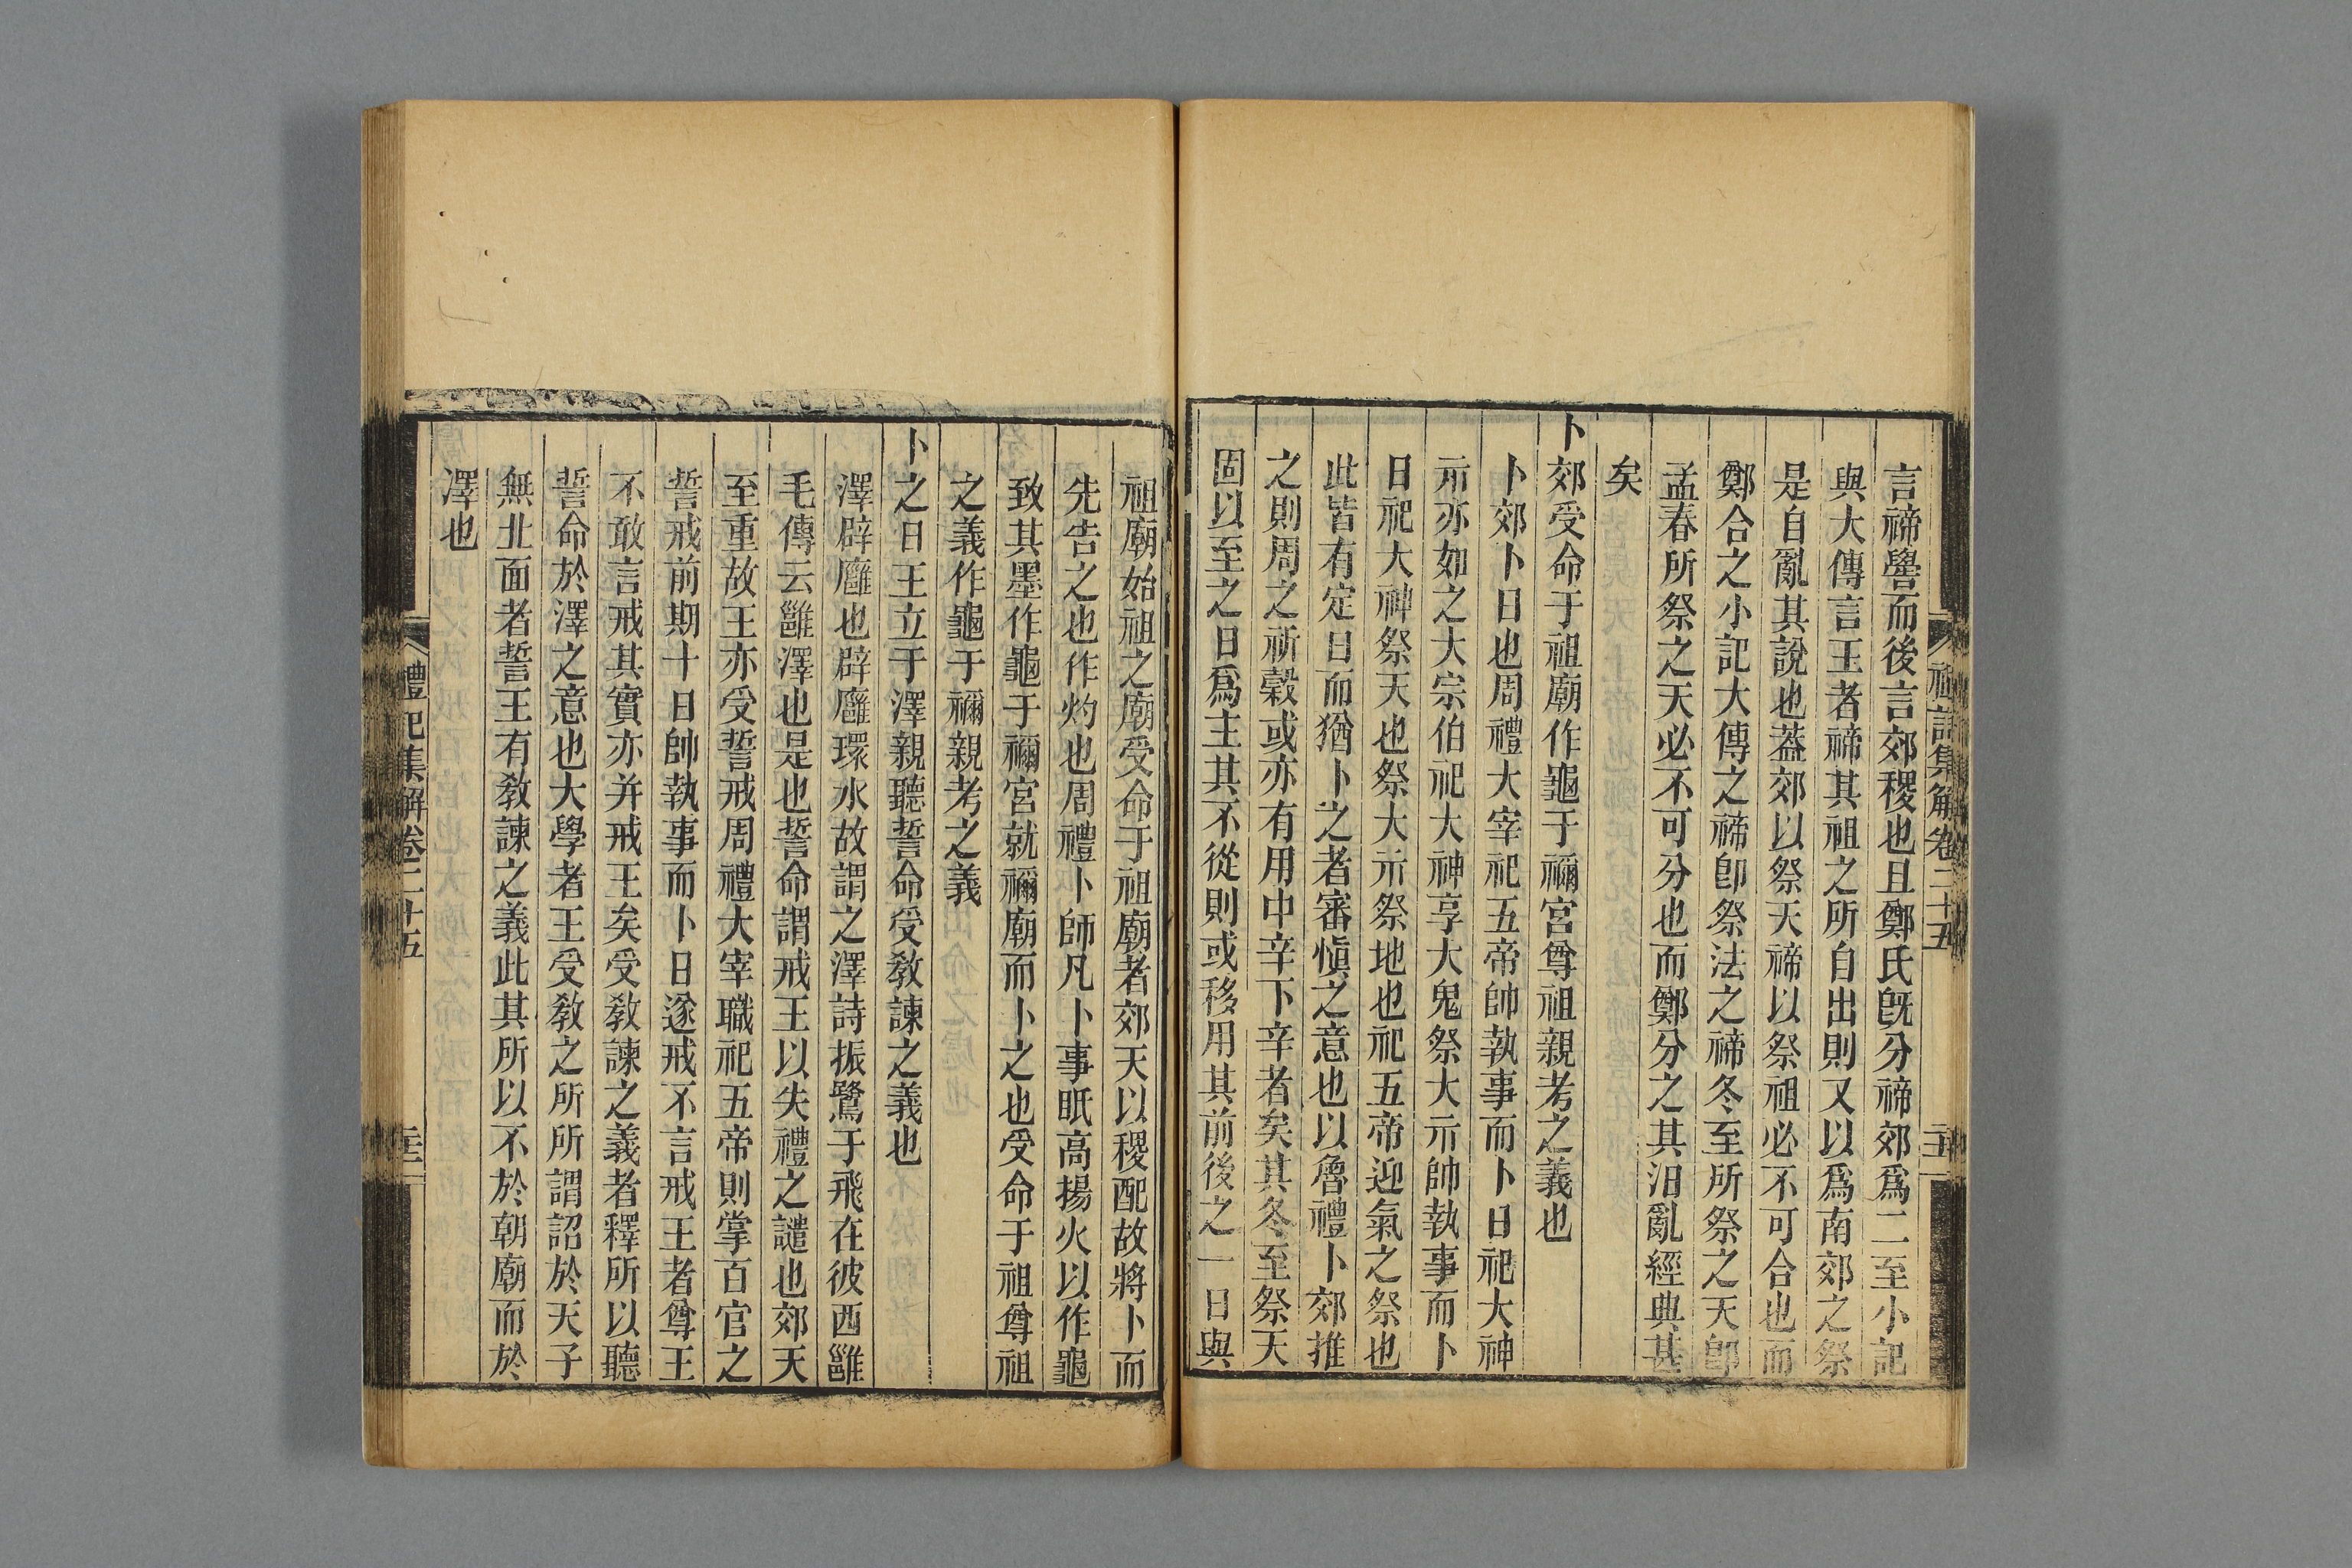 禮記集解卷二十五
言禘嚳而後言郊稷也且鄭氏旣分禘郊爲二至小記
與大傳言王者禘其祖之所自出則又以爲南郊之祭
是自亂其說也葢郊以祭天禘以祭祖必不可合也而
鄭合之小記大傳之禘卽祭法之禘冬至所祭之天卽
孟春所祭之天必不可分也而鄭分之其汨亂經典甚
矣
卜郊受命于祖廟作龜于禰宮尊祖親考之義也
卜郊卜日也周禮大宰祀五帝帥執事而卜日祀大神
示亦如之大宗伯祀大神享大鬼祭大示帥執事而卜
日祀大神祭天也祭大示祭地也祀五帝迎氣之祭也
此皆有定日而猶卜之者審愼之意也以魯禮卜郊推
之則周之祈穀或亦有用中辛下辛者矣其冬至祭天
固以至之日爲主其不從則或移用其前後之一日與
祖廟始祖之廟受命于祖廟者郊天以稷配故將卜而
先告之也作灼也周禮卜師凡卜事眂高揚火以作龜
致其墨作龜于禰宮就禰廟而卜之也受命于祖尊祖
之義作龜于禰親考之義
卜之日王立于澤親聽誓命受敎諫之義也
澤辟廱也辟廱環水故謂之澤詩振鷺于飛在彼西雝
毛傳云雝澤也是也誓命謂戒王以失禮之譴也郊天
至重故王亦受誓戒周禮大宰職祀五帝則掌百官之
誓戒前期十日帥執事而卜日遂戒不言戒王者尊王
不敢言戒其實亦并戒王矣受敎諫之義者釋所以聽
誓命於澤之意也大學者王受敎之所所謂詔於天子
無北面者誓王有敎諫之義此其所以不於朝廟而於
澤也
禮記集解卷二十五